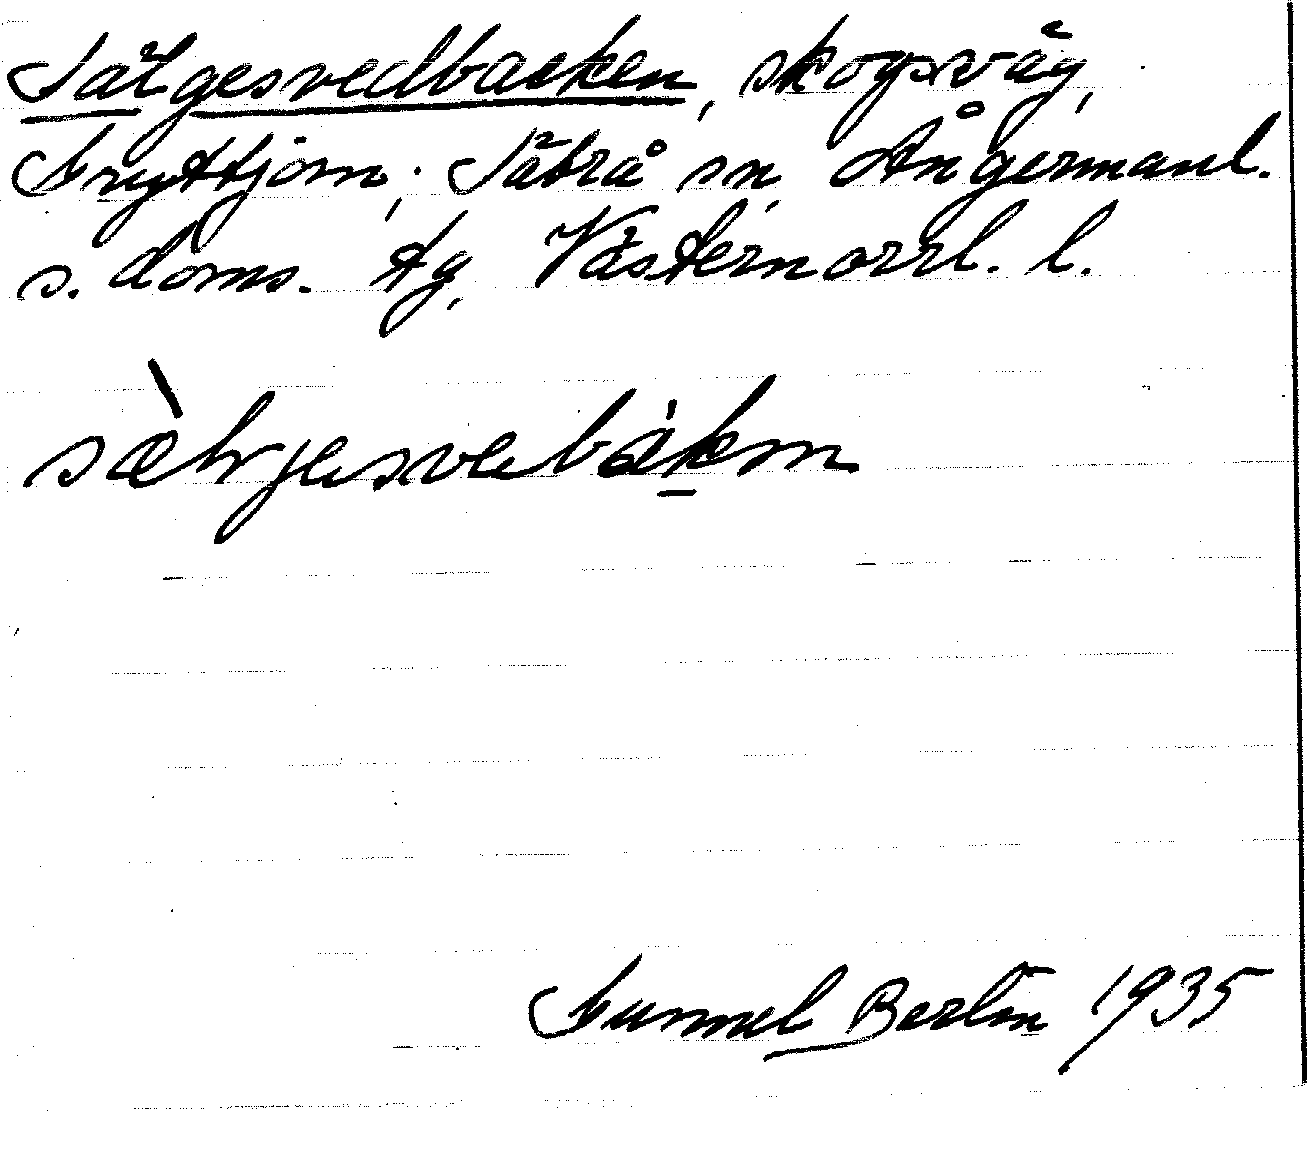 Sälgesvedbacken, skogsväg,
Gryttjom, Säbrå sn, Ångermanl.
s. doms. tg, Västernorrl. l.
sæ̀lrjesvebákm
Gunnel Berlin 1935